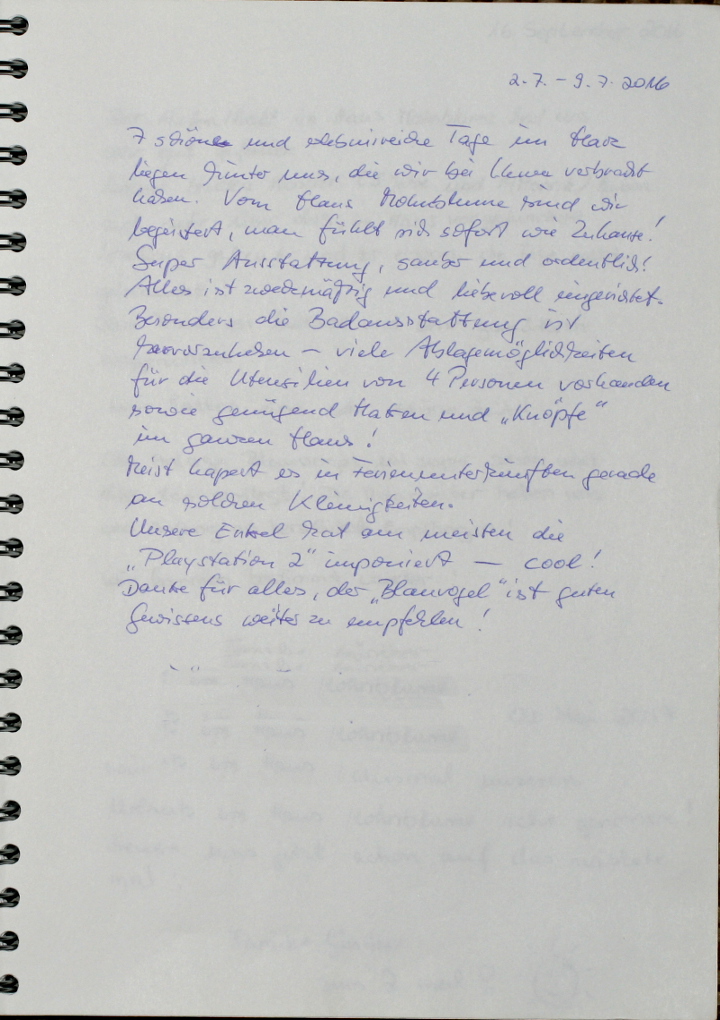 2.7. – 9.7.2016
7 schöne und erlebnisreiche Tage im Harz
liegen hinter uns, die wir bei Ihnen verbracht
haben. Vom Haus Kornblume sind wir
begeistert, man fühlt sich sofort wie Zuhause!
Super Ausstattung, sauber und ordentlich!
Alles ist zweckmäßig und liebevoll eingerichtet.
Besonders die Badausstattung ist
hervorzuheben – viele Ablagemöglichkeiten
für die Utensilien von 4 Personen vorhanden
sowie genügend Haken und „Knöpfe“
im ganzen Haus!
Meist hapert es in Ferienunterkünften gerade
an solchen Kleinigkeiten.
Unsere Enkel hat am meisten die
„Playstation 2“ imponiert – cool!
Danke für alles, der „Blauvogel“ ist guten
Gewissens weiter zu empfehlen!